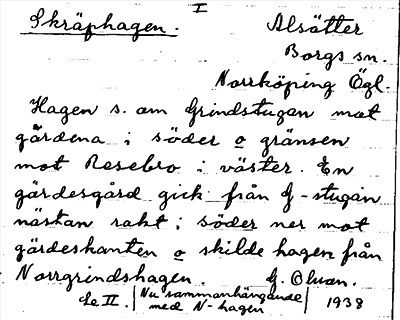 I
Skräphagen. Alsätter
Borgs sn.
Norrköping Ögl.
Hagen s. om Grindstugan mot
gärdena i söder o gränsen
mot Rosebro i väster. En
gärdesgård gick från G-stugan
nästan rakt i söder ner mot
gärdeskanten o skilde hagen från
Norrgrindshagen. G. Olsson.
Le II. | Nu sammanhängande | 1938
med N-hagen